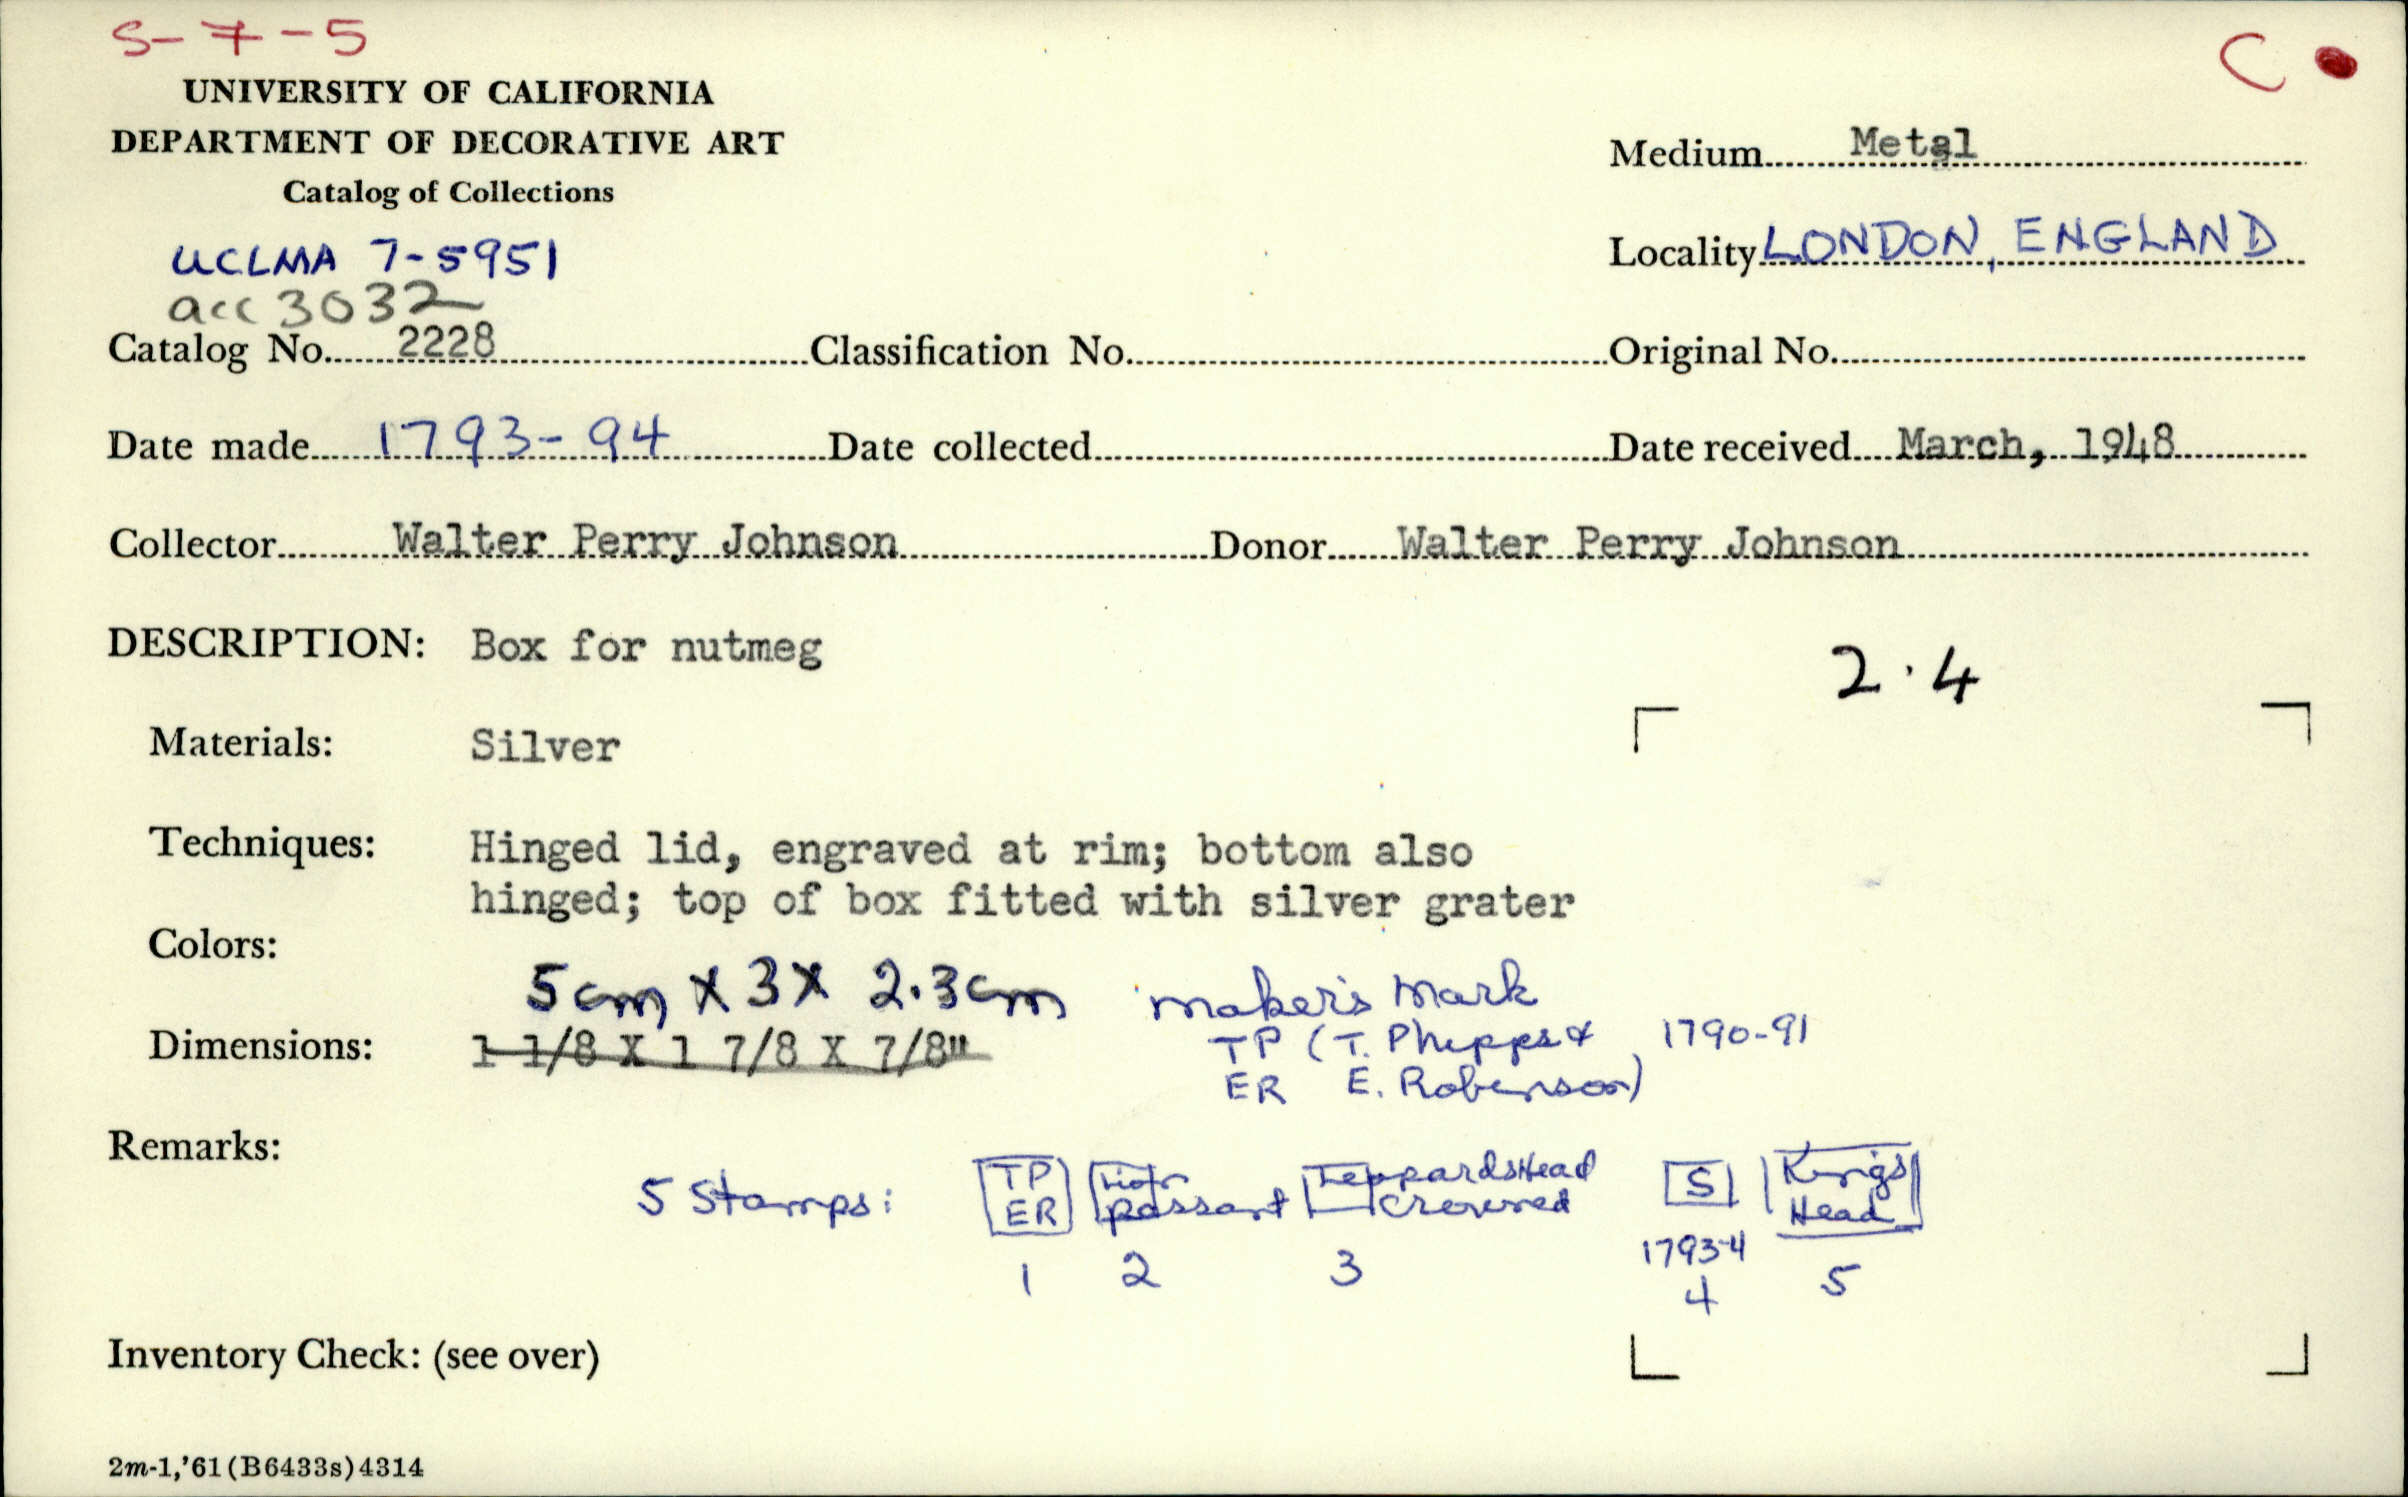 S-7-5
C
UNIVERSITY OF CALIFORNIA
DEPARTMENT OF DECORATIVE ART
Catalog of Collections
Medium Metal
UCLMA 7-5951
Locality LONDON, ENGLAND
acc 3032
Catalog No. 2228 Classification No. Original No.
Date made 1793-94 Date collected Date received March, 1948
Collector Walter Perry Johnson Donor Walter Perry Johnson
DESCRIPTION: Box for nutmeg
2.4
Materials: Silver
Techniques: Hinged lid, engraved at rim; bottom also
hinged; top of box fitted with silver grater
Colors:
5cm X 3 X 2.3cm maker's mark
TP (T. Phipps & , 1790-91
Dimensions: 1 1/8 X 1 7/8 X 7/8"
ER E. Robinson)
Remarks:
5 Stamps: TP Lion Leppards Head S Kings
ER passant crowned Head
1793-4
1 2 3 4 5
Inventory Check: (see over)
2m-1,'61(B6433s)4314